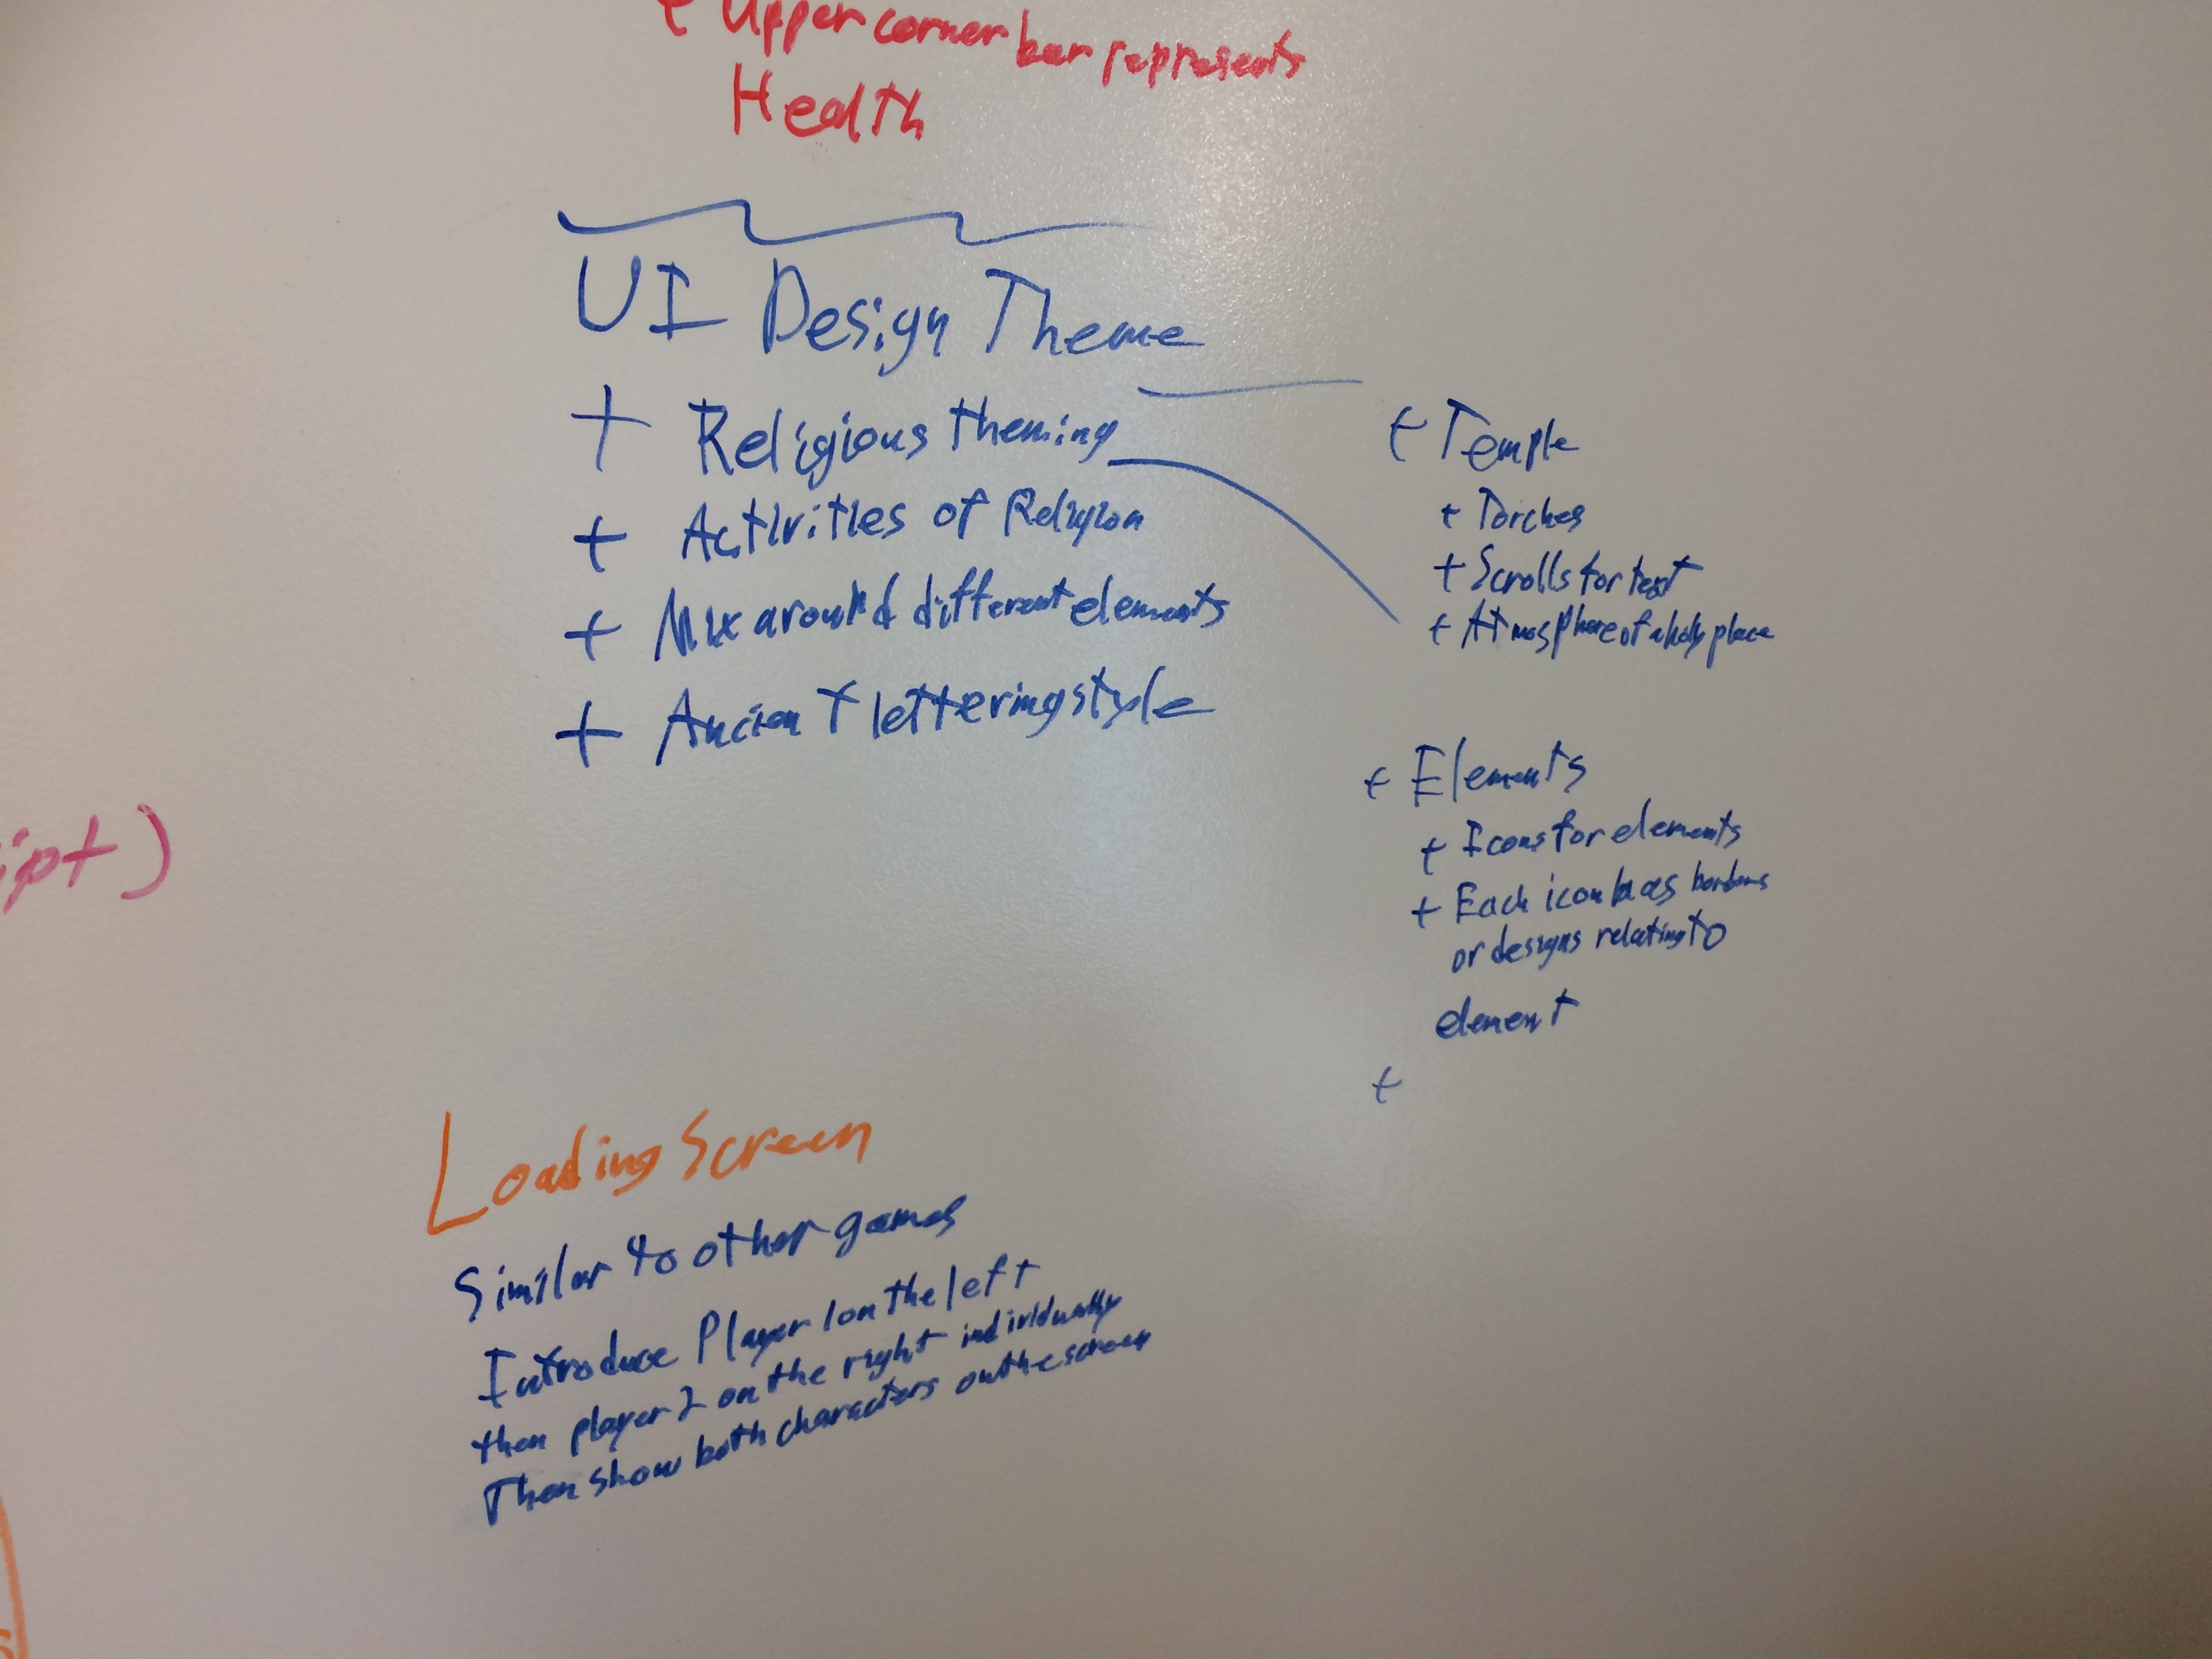 + Upper corner bar represents
Health
UI Design Theme
+ Religious theming
+ Activities of Religion
+ Mix around different elements
+ Ancient lettering style
+ Temple
+ Torches
+ Scrolls for text
+ Atmosphere of a holy place
+ Elements
+ Icons for elements
+ Each icon has borders
or designs relating to
element
+
ipt)
Loading Screen
Similar to other games
Introduce Player 1 on the left
then player 2 on the right individually
Then show both characters on the screen